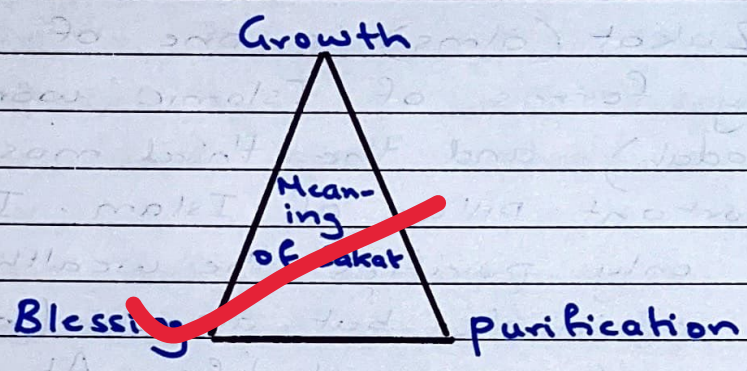 Growth
Mean-
ing
of Zakat
Blessing
Purification